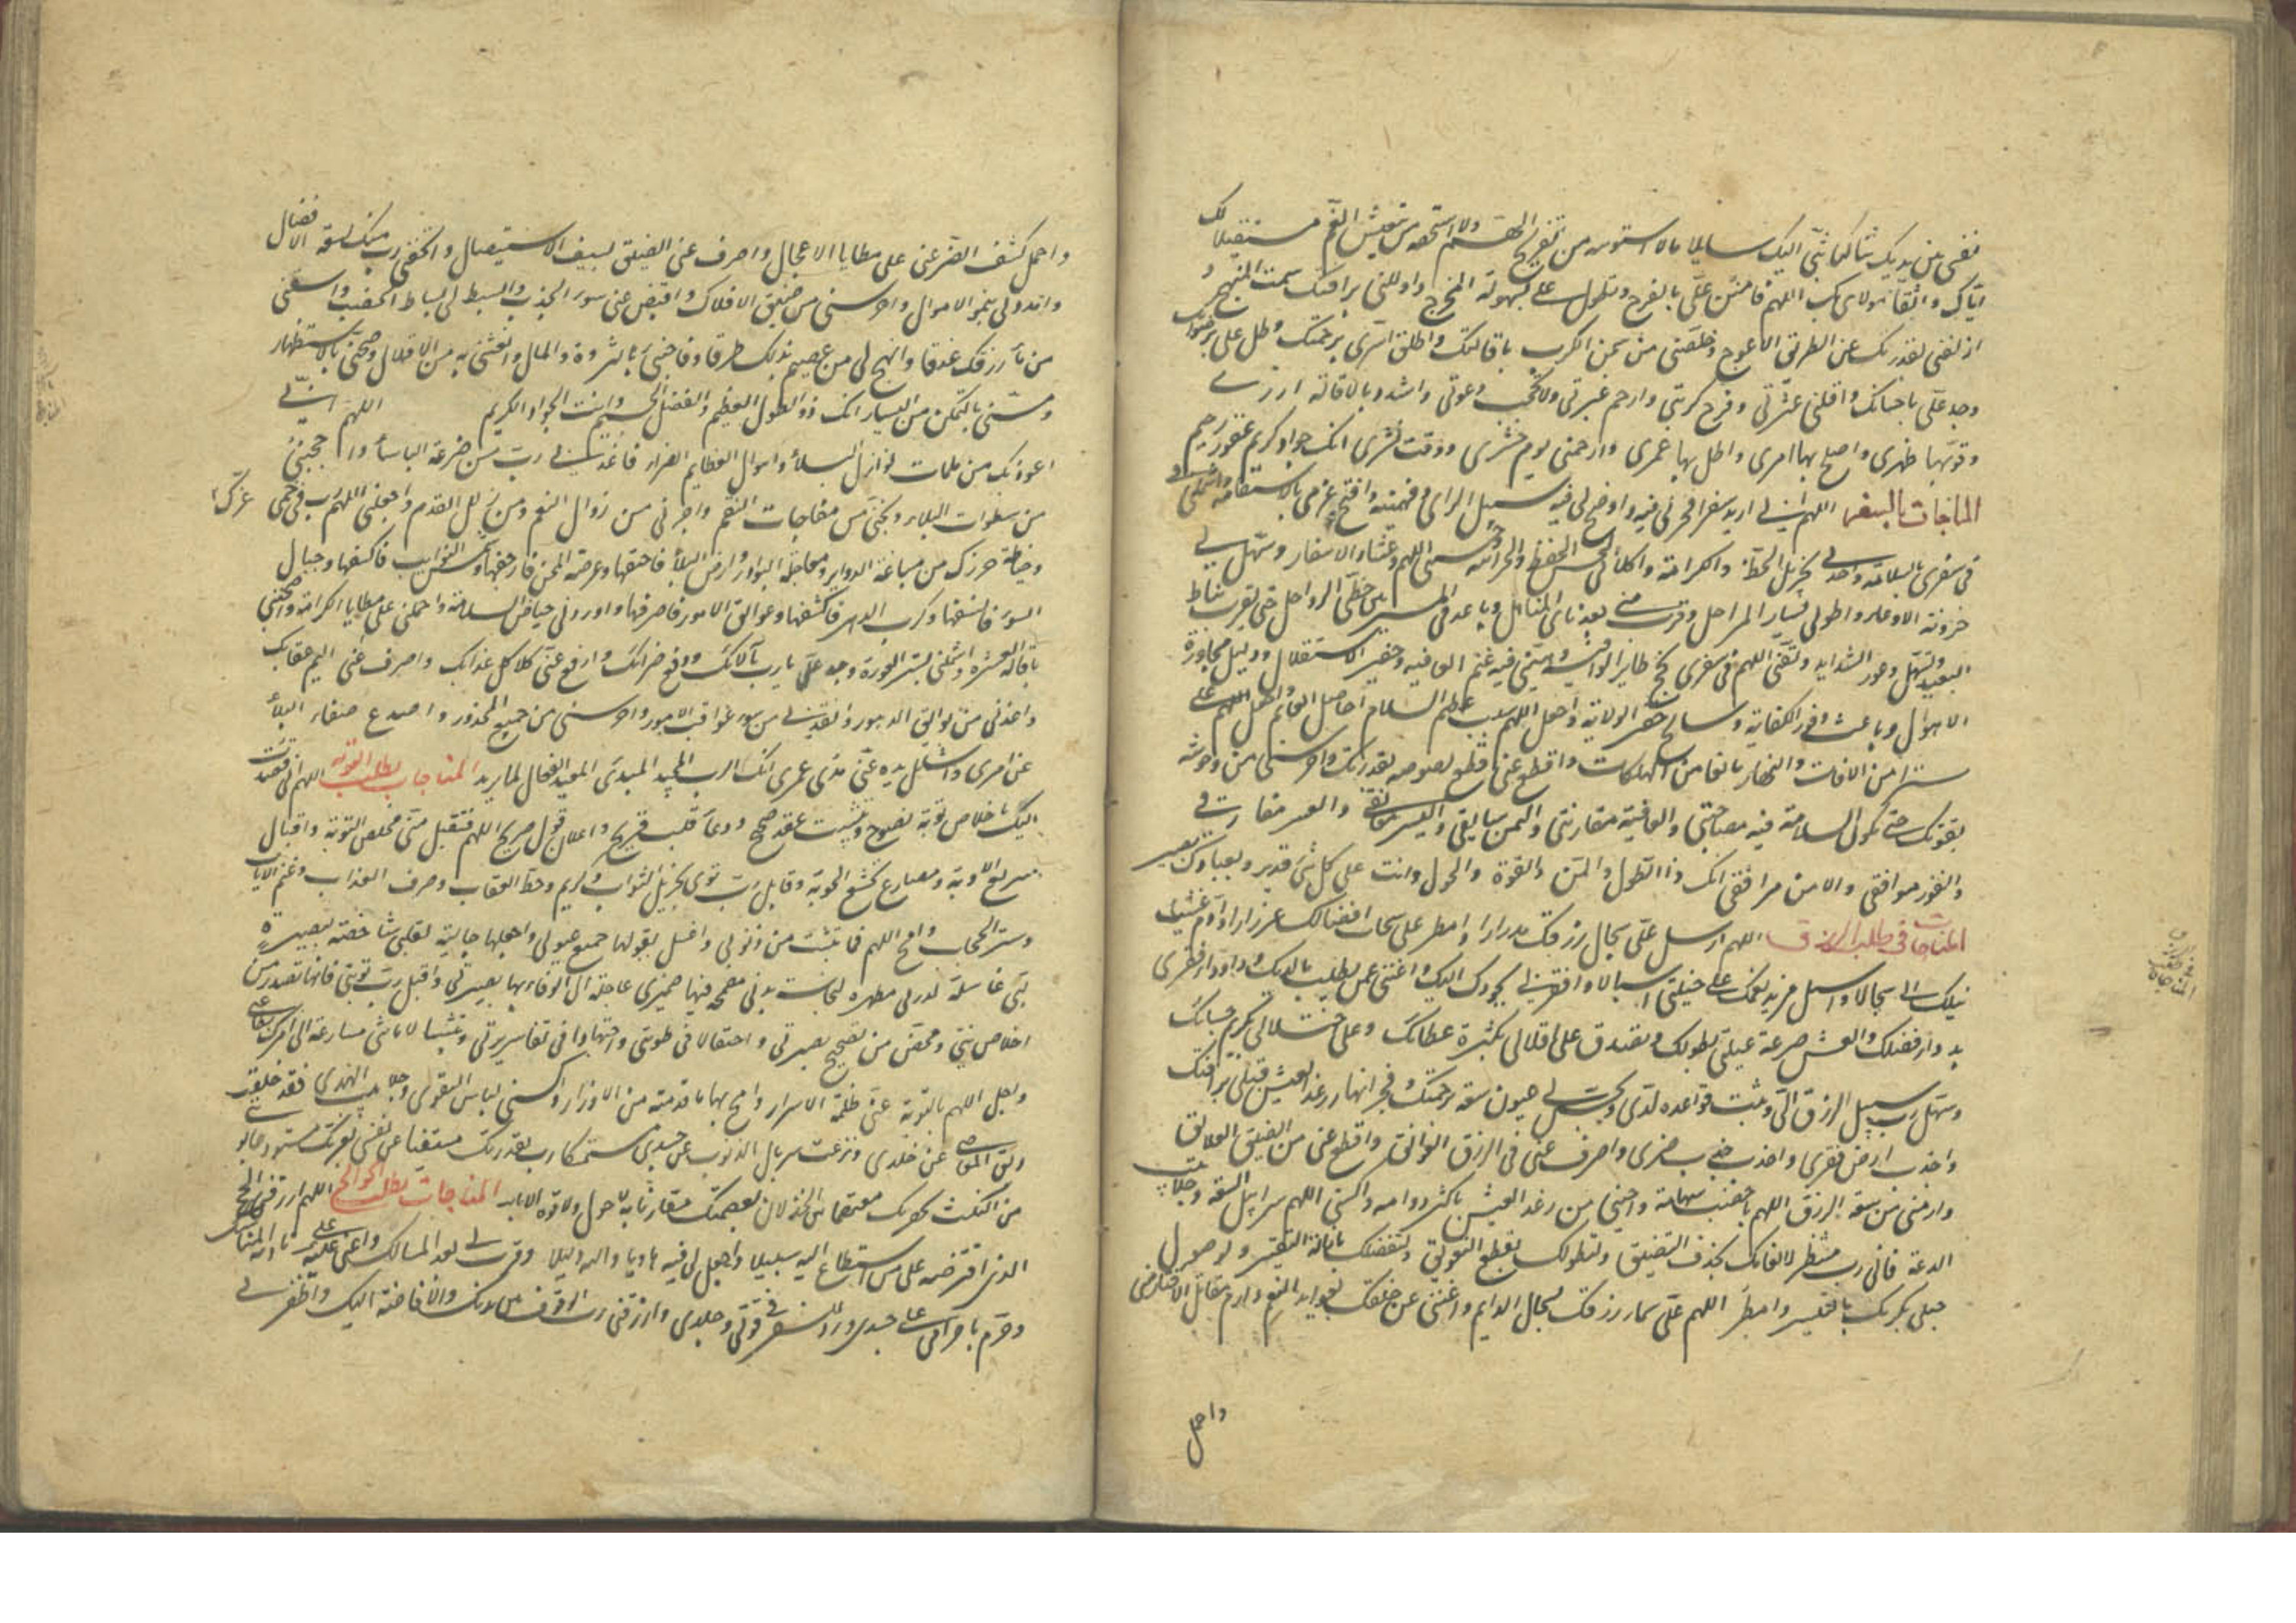 نفسی بین یدیک شاکیا بثی الیک سایلا مالا استوجبه من تفریج الهم ولا استحقه من تنفیس الغم مستقیلا لک
ایاک واثقا مولای بک اللهم فامنن علی بالفرج وتطول علی بسهولة المخرج وادللنی برافتک سمت المنهج و
ازلقنی بقدرتک عن الطریق الاعوج وخلصنی من سجن الکرب باقالتک واطلق اسری برحمتک وطل علی برضوانک
وجد علی باحسانک واقلنی عثرتی وفرج کربتی وارحم عبرتی ولا تحجب دعوتی واشدد بالاقالة ازری
وقو بها ظهری واصلح بها امری واطل بها عمری وارحمنی یوم حشری ووقت نشری انک جواد کریم غفور رحیم
المناجات بالسفر اللهم انی ارید سفرا فخر لی فیه واوضح لی فیه سبیل الرای وفهمنیه وافتح عزمی بالاستقامة واشملنی
فی سفری بالسلامة وافدنی بجزیل الحظ والکرامة واکلأنی بحسن الحفظ والحراسة وجنبنی اللهم وعثاء الاسفار وسهل لی
حزونة الاوعار واطو لی بساط المراحل وقرب منی بعد نای المناهل وباعد فی المسیر بین خطی الرواحل حتی تقرب نیاط
البعید وتسهل وعور الشداید ولقنی اللهم فی سفری نجح طایر الواقیة وهبنی فیه غنم العافیه وخفیر الاستقلال ودلیل مجاوزة
الاهوال وباعث وفور الکفایة وسانح خفیر الولایة واجعله اللهم سبب عظیم السلم حاصل الغنم واجعل اللیل علی
سترا من الافات والنهار مانعا من الهلکات واقطع عنی قطع لصوصه بقدرتک واحرسنی من وحوشه
بقوتک حتی تکون السلامة فیه مصاحبتی والعافیة مقارنتی والیمن سایقی والیسر معانقی والعسر مفارقی
والفوز موافقی والامن مرافقی انک ذو الطول والمن والقوة والحول وانت علی کل شیء قدیر وبعبادک بصیر
المناجات فی طلب الرزق اللهم ارسل علی سجال رزقک مدرارا وامطر علی سحائب افضالک غزارا وادم غیث
نیلک الی سجالا واسبل مزید نعمک علی خلتی اسبالا وافقرنی بجودک الیک واغننی عمن یطلب ما لدیک وداو داء فقری
بدواء فضلک وانعش صرعة عیلتی بطولک وتصدق علی اقلالی بکثرة عطائک وعلی اختلالی بکریم حبائک
وسهل رب سبیل الرزق الی وثبت قواعده لدی وبجس لی عیون سعة رحمتک وفجر انهار رغد العیش قبلی برافتک
واجدب ارض فقری واخصب جدب ضری واصرف عنی فی الرزق العوائق واقطع عنی من الضیق العلائق
وارمنی من سعة الرزق اللهم باخصب سهامه واحبنی من رغد العیش باکثر دوامه واکسنی اللهم سرابیل السعة وجلابیب
الدعة فانی رب منتظر لانعامک بحذف التضییق ولتطولک بقطع التعویق ولتفضلک بازالة التقتیر ولوصول
حبلی بکرمک بالتیسیر وامطر اللهم علی سماء رزقک بسجال الدیم واغننی عن خلقک بعواید النعم وارم مقاتل الاقتار منی
واحمل
واحمل کشف الضر عنی علی مطایا الاعجال واصرف عنی الضیق بسیف الاستیصال واتحفنی رب منک بسعة الافضال
وامددنی بنمو الاموال واحرسنی من ضیق الاقلال واقبض عنی سوء الجدب وابسط لی بساط الخصب واسقنی
من ماء رزقک غدقا وانهج لی من عمیم بذلک طرقا وفاجئنی بالثروة والمال وانعشنی به من الاقلال وصبحنی بالاستظهار
ومسنی بالتمکن من الیسار انک ذو الطول العظیم والفضل العمیم وانت الجواد الکریم اللهم انی
اعوذ بک من ملمات نوازل البلاء واهوال عظایم الضراء فاعذنی رب من صرعة الباساء واحجبنی
من سطوات البلاء ونجنی من مفاجات النقم واجرنی من زوال النعم ومن زلل القدم واجعلنی اللهم رب فی حمی عزک
وحیاطة حرزک من مباغتة الدوایر ومعاجلة البوادر وارض البلاء فاخسفها وعرصة المحن فارجفها وشمس النوایب فاکسفها وجبال
السوء فانسفها وکرب الدهر فاکشفها وعوائق الامور فاصرفها واوردنی حیاض السلامة واحملنی علی مطایا الکرامة واصحبنی
باقالة العثرة واشملنی بستر العورة وجد علی یا رب بآلائک ودفع ضرائک وارفع عنی کلاکل عذابک واصرف عنی الیم عقابک
واعذنی من بوائق الدهور وانقذنی من سوء عواقب الامور واحرسنی من جمیع المحذور واصدع صفاة البلاء
عن امری واشلل یده عنی مدی عمری انک الرب المجید المبدئ المعید الفعال لما یرید المناجات بطلب التوبة اللهم انی قصدت
الیک باخلاص توبة نصوح وتثبیت عقد صحیح ودعاء قلب قریح واعلان قول صریح اللهم فتقبل منی مخلص التوبة واقبال
سریع الاوبة ومصارع تخشع الحوبة وقابل رب توبتی بجزیل الثواب وکریم المآب وحط العقاب وصرف العذاب وغنم الایاب
وستر الحجاب وامح اللهم ما ثبت من ذنوبی واغسل بقبولها جمیع عیوبی واجعلها جالیة لقلبی شاخصة لبصیرة
لبی غاسلة لدرنی مطهرة لنجاسة بدنی مصححة فیها ضمیری عاجلة الی الوفاء بها بصیرتی واقبل رب توبتی فانها تصدر من
اخلاص نیتی ومحض من تصحیح بصیرتی واحتفالا فی طویتی واجتهادا فی نقاء سریرتی وتثبیتا لانابتی مسارعة الی امرک بطاعتی
واجل اللهم بالتوبة عنی ظلمة الاصرار وامح بها ما قدمته من الاوزار واکسنی لباس التقوی وجلابیب الهدی فقد خلعت
ربق المعاصی عن جلدی ونزعت سربال الذنوب عن جسدی مستمسکا رب بقدرتک مستعینا علی نفسی بعزتک مستودعا توبتی
من النکث بخفرتک معتصما من الخذلان بعصمتک مقارنا به لا حول ولا قوة الا بک المناجات بطلب الحوائج اللهم ارزقنی الحج
الذی افترضته علی من استطاع الیه سبیلا واجعل لی فیه هادیا والیه دلیلا وقرب لی بعد المسالک واعنی علی تادیة المناسک
وحرم باحرامی علی النار جسدی وزد للسفر فی قوتی وجلدی وارزقنی رب الوقوف بین یدیک والافاضة الیک واظفرنی